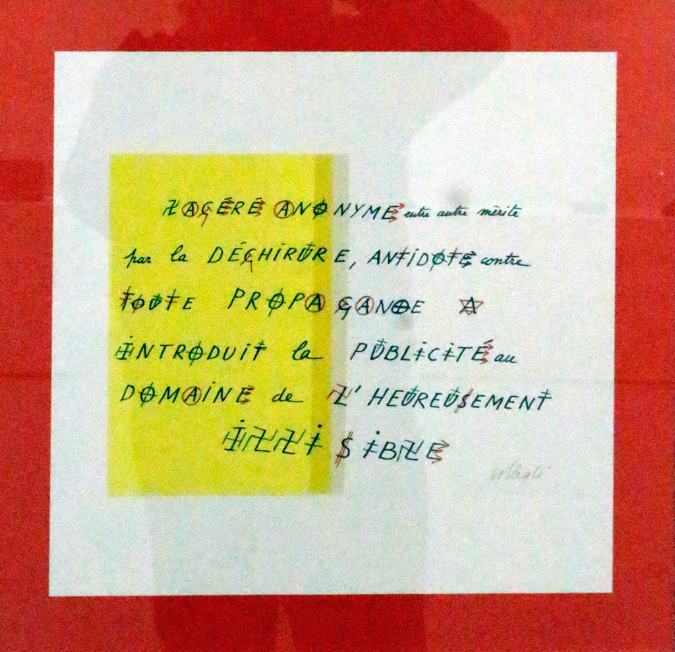 LACÉRÉ ANONYME entre autre mérite
par la DÉCHIRURE, ANTIDOTE contre
TOUTE PROPAGANDE
INTRODUIT la PUBLICITÉ au
DOMAINE de L'HEUREUSEMENT
ILLISIBLE
villeglé